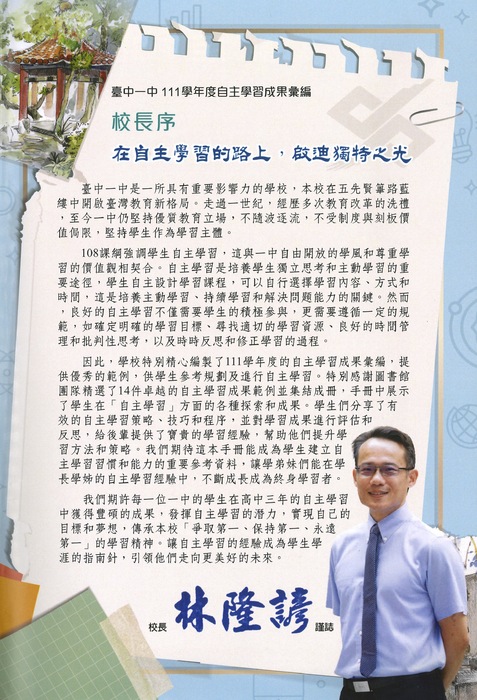 臺中一中 111學年度自主學習成果彙編
校長序
在自主學習的路上，啟迪獨特之光
臺中一中是一所具有重要影響力的學校，本校在五先賢篳路藍
縷中開啟臺灣教育新格局。走過一世紀，經歷多次教育改革的洗禮
，至今一中仍堅持優質教育立場，不隨波逐流，不受制度與刻板價
值侷限，堅持學生作為學習主體。
108課綱強調學生自主學習，這與一中自由開放的學風和尊重學
習的價值觀相契合。自主學習是培養學生獨立思考和主動學習的重
要途徑，學生自主設計學習課程，可以自行選擇學習內容、方式和
時間，這是培養主動學習、持續學習和解決問題能力的關鍵。然而
，良好的自主學習不僅需要學生的積極參與，更需要遵循一定的規
範，如確定明確的學習目標、尋找適切的學習資源、良好的時間管
理和批判性思考，以及時時反思和修正學習的過程。
因此，學校特別精心編製了111學年度的自主學習成果彙編，提
供優秀的範例，供學生參考規劃及進行自主學習。特別感謝圖書館
團隊精選了14件卓越的自主學習成果範例並集結成冊，手冊中展示
了學生在「自主學習」方面的各種探索和成果。學生們分享了有
效的自主學習策略、技巧和程序，並對學習成果進行評估和
反思，給後輩提供了寶貴的學習經驗，幫助他們提升學
習方法和策略。我們期待這本手冊能成為學生建立自
主學習習慣和能力的重要參考資料，讓學弟妹們能在學
長學姊的自主學習經驗中，不斷成長成為終身學習者。
我們期許每一位一中的學生在高中三年的自主學習
中獲得豐碩的成果，發揮自主學習的潛力，實現自己的
目標和夢想，傳承本校「爭取第一、保持第一、永遠
第一」的學習精神。讓自主學習的經驗成為學生學
涯的指南針，引領他們走向更美好的未來。
校長 林隆諺 謹誌